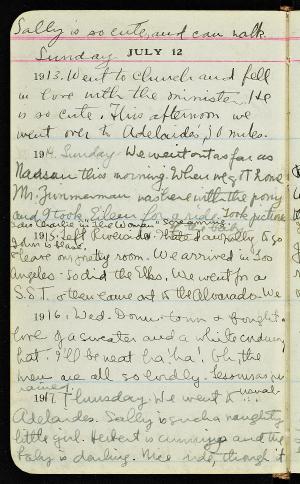 Sally is so cute, and can walk.
Sunday JULY 12
1913. Went to church and fell
in love with the minister. He
is so cute. This afternoon we
went over to Adelaides, 30 miles.
1914. Sunday. We went out as far as
this morning. When we got home
Mr. Zimmerman was here with the pony
and I took Eileen for a ride. Took pictures
Saw Charlie in "The Woman"
1915. Left Riverside. Hated awfully to go
& leave our pretty room. We arrived in Los
Angeles. So did the Elks. We went for a
S.S.T. & then came out to the Alvarado. We
1916. Wed. Down-town & bought
love of a sweater and a white corduroy
hat. I'll be neat ha! ha! Oh, the
men are all so lordly.
1917 Thursday. We went to
Adelaides. Sally is such a naughty
little girl. Herbert is cunning and the
baby is darling. Nice ride, though it